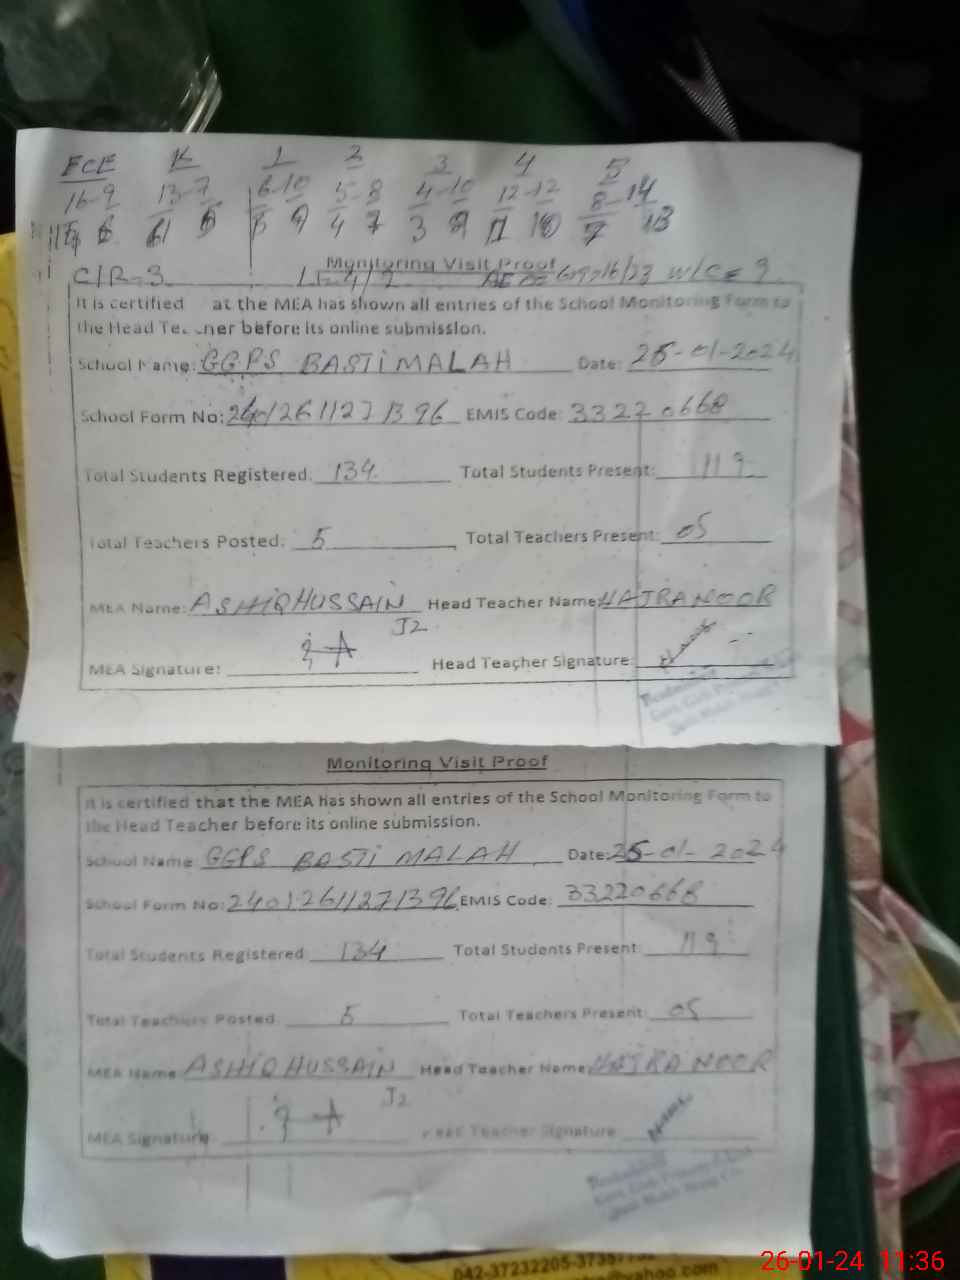 ECE K 1 2 3 4 5
16-9 13-7 6-10 5-8 4-10 12-12 8-14
4 7 3 9 11 10 7 13
Monitoring Visit Proof
C/R=3 w/c= 9
It is certified at the MEA has shown all entries of the School Monitoring Form to
the Head Te ner before its online submission.
School Name: GGPS BASTI MALAH Date: 25-01-2024
School Form No: 24012611271396 EMIS Code: 33220668
Total Students Registered: 134 Total Students Present: 119
Total Teachers Posted: 5 Total Teachers Present: 05
MEA Name: ASHIQ HUSSAIN Head Teacher Name HAJRA NOOR
J2
MEA Signature: Head Teacher Signature:
Monitoring Visit Proof
It is certified that the MEA has shown all entries of the School Monitoring Form to
the Head Teacher before its online submission.
School Name: GGPS BASTI MALAH Date: 25-01-2024
School Form No: 24012611271396 EMIS Code: 33220668
Total Students Registered 134 Total Students Present: 119
Total Teachers Posted: 5 Total Teachers Present: 05
MEA Name: ASHIQ HUSSAIN Head Teacher Name HAJRA NOOR
J2
MEA Signature: Teacher Signature:
042-37232205-3735
yahoo.com
26-01-24 11:36